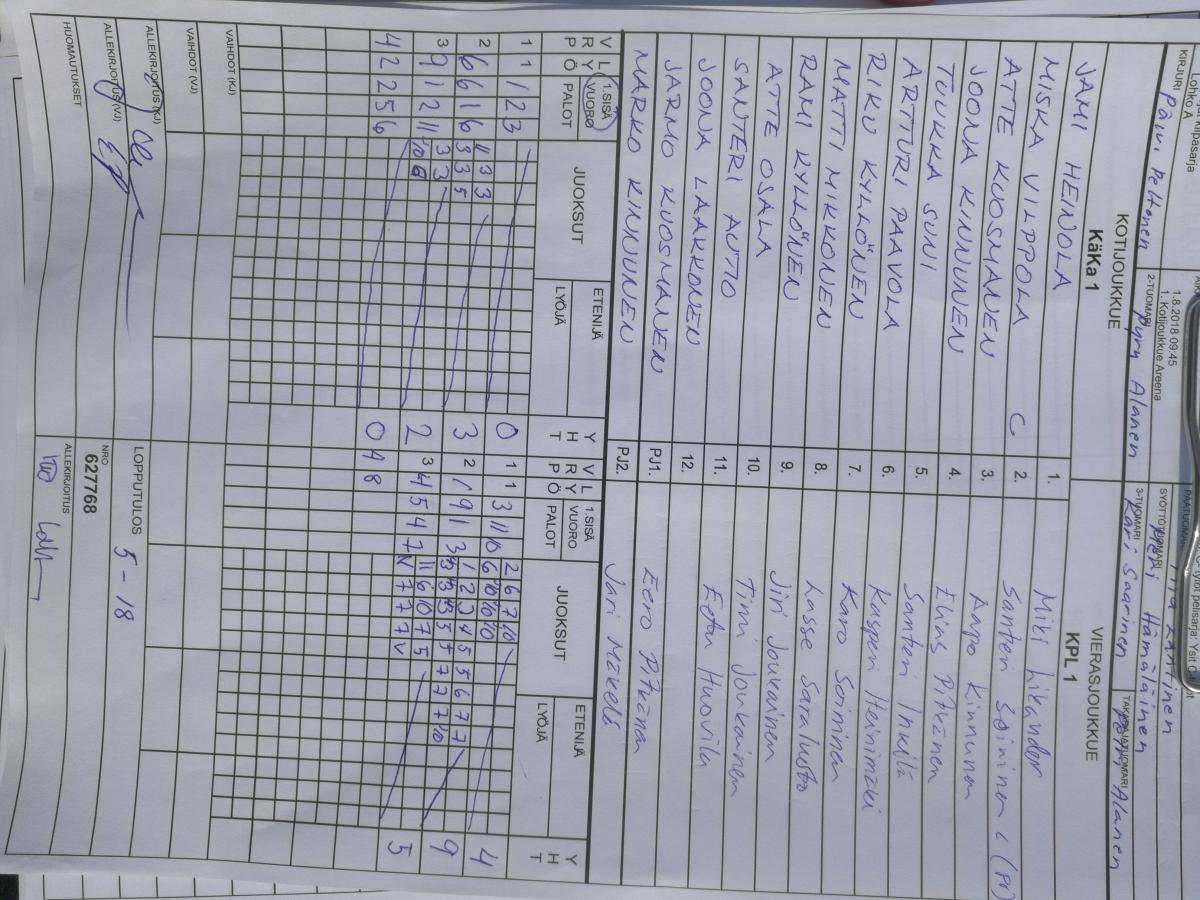 Lohko A
KIRJURI Päivi Peltonen
1.8.2018 09:45
1. Kotijoukkue Areena
2-TUOMARI Pyry Alanen
SYÖTTÖTUOMARI Hämäläinen
3-TUOMARI Kari Saarinen
TAKARAJATUOMARI Alanen
KOTIJOUKKUE
KäKa 1
VIERASJOUKKUE
KPL 1
JAMI HEINOLA 1. Miki Likander
MISKA VILPPOLA C 2. Santeri Soininen C (PI)
ATTE KUOSMANEN 3. Aapo Kinnunen
JOONA KINNUNEN 4. Elias Pitkänen
TUUKKA SUNI 5. Santeri Inkilä
ARTTURI PAAVOLA 6. Kasperi Heinimäki
RIKU KYLLÖNEN 7. Karo Soininen
MATTI MIKKONEN 8. Lasse Saraluoto
RAMI KYLLÖNEN 9. Jiri Joukainen
ATTE OSALA 10. Timi Joukainen
SANTERI AUTIO 11. Eetu Huovila
JOONA LAAKKONEN 12.
JARMO KUOSMANEN PJ1. Eero Pitkänen
MARKO KINNUNEN PJ2. Jari Mäkelä
V R P L Y Ö 1.SISÄ VUORO PALOT JUOKSUT ETENIJÄ LYÖJÄ Y H T
V R P L Y Ö 1.SISÄ VUORO PALOT JUOKSUT ETENIJÄ LYÖJÄ Y H T
1 1 1 2 3 0
1 1 3 11 10 2 6 7 10 4
6 10 10 10
2 6 6 1 6 11 3 3 3
3 3 5
2 1 9 1 3 1 2 3 4 5 5 6 7 7 9
3 9 1 2 11 3 3 2
3 4 5 4 7 11 6 10 7 5 5
V 7 7 7 V
4 2 2 5 6 0
4 8
VAIHDOT (KJ)
VAIHDOT (VJ)
ALLEKIRJOITUS (KJ)
ALLEKIRJOITUS (VJ)
HUOMAUTUKSET
LOPPUTULOS 5 - 18
NRO
627768
ALLEKIRJOITUS